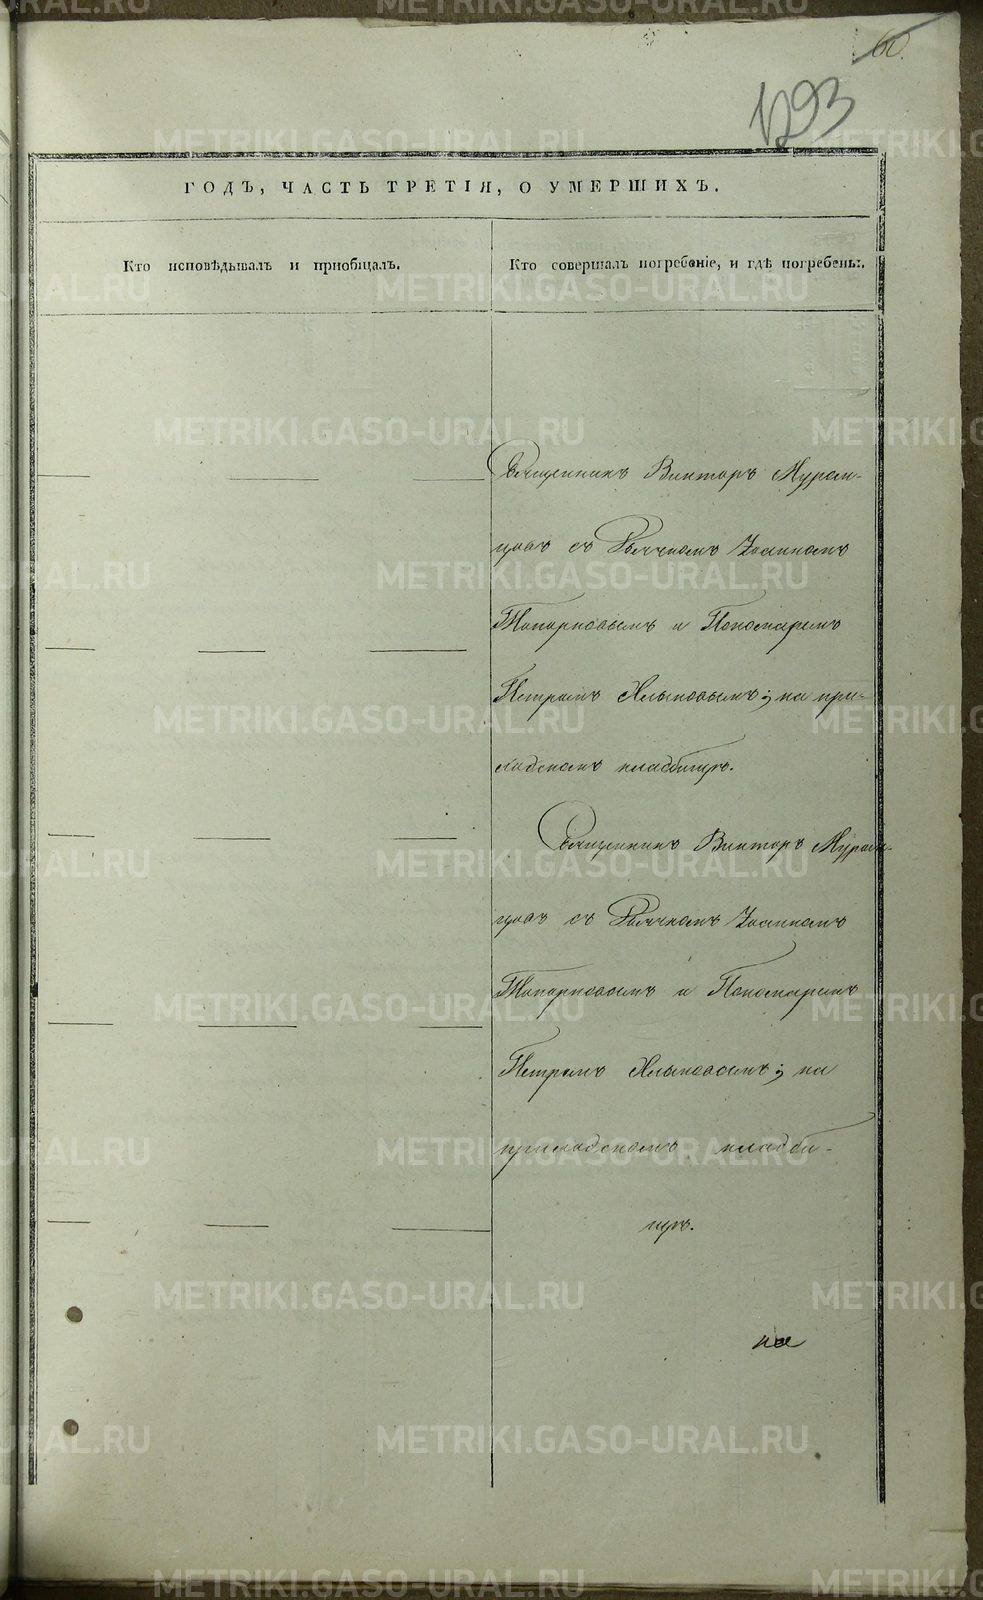 60.
1293
ГОДЪ, ЧАСТЬ ТРЕТІЯ, О УМЕРШИХЪ.
Кто исповѣдывалъ и пріобщалъ.
Кто совершалъ погребеніе, и гдѣ погребены.
Священникъ Викторъ
съ Дьячкомъ Іоанномъ
Топорковымъ и Пономаремъ
Петромъ Хлыновымъ; на при-
ходскомъ кладбищѣ.
Священникъ Викторъ
съ Дьячкомъ Іоанномъ
Топорковымъ и Пономаремъ
Петромъ Хлыновымъ; на
приходскомъ кладби-
щѣ.
на
METRIKI.GASO-URAL.RU